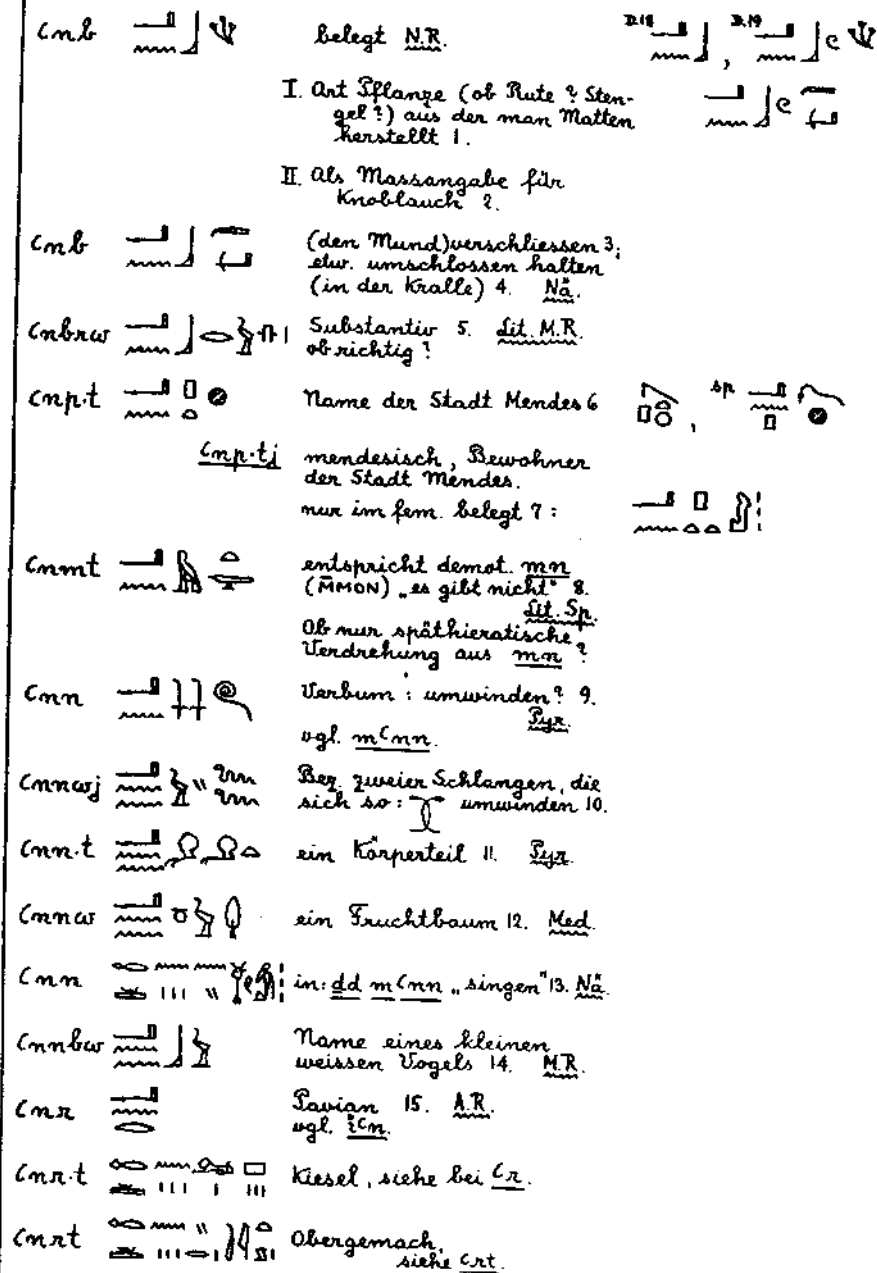 ꜥnb belegt N.R. D.18 , D.19
I. Art Pflanze (ob Rute? Sten-
gel?) aus der man Matten
herstellt 1.
II. Als Massangabe für
Knoblauch 2.
ꜥnb (den Mund) verschliessen 3;
etw. umschlossen halten
(in der Kralle) 4. Nä.
ꜥnbrw Substantiv 5. Lit. M.R.
ob richtig?
ꜥnp.t Name der Stadt Mendes 6 , sp
ꜥnp.tj mendesisch, Bewohner
der Stadt Mendes.
nur im fem. belegt 7:
ꜥnmt entspricht demot. mn
(M̄MON) „es gibt nicht" 8.
Lit. Sp.
Ob nur späthieratische
Verdrehung aus mn?
ꜥnn Verbum: umwinden? 9.
Pyr.
vgl. mꜥnn.
ꜥnnwj Bez. zweier Schlangen, die
sich so: umwinden 10.
ꜥnn.t ein Körperteil 11. Pyr.
ꜥnnw ein Fruchtbaum 12. Med.
ꜥnn in: dd m ꜥnn „singen" 13. Nä.
ꜥnnbw Name eines kleinen
weissen Vogels 14. M.R.
ꜥnr Pavian 15. A.R.
vgl. iꜥn.
ꜥnr.t Kiesel, siehe bei ꜥr.
ꜥnrt Obergemach,
siehe ꜥrt.